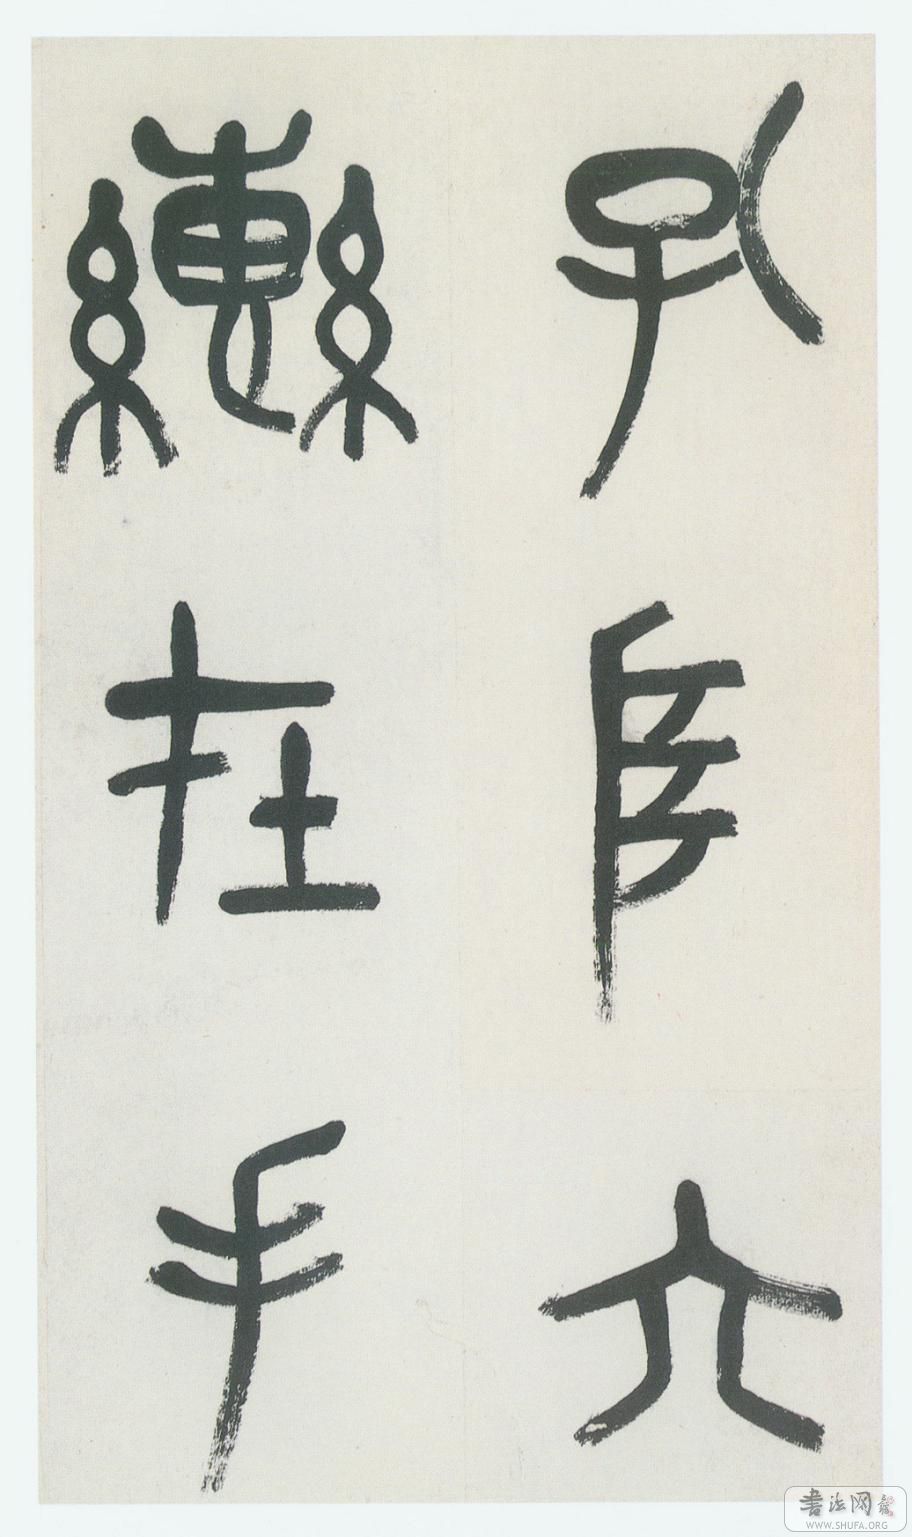 孔阜六
轡在手
書法网
WWW.SHUFA.ORG